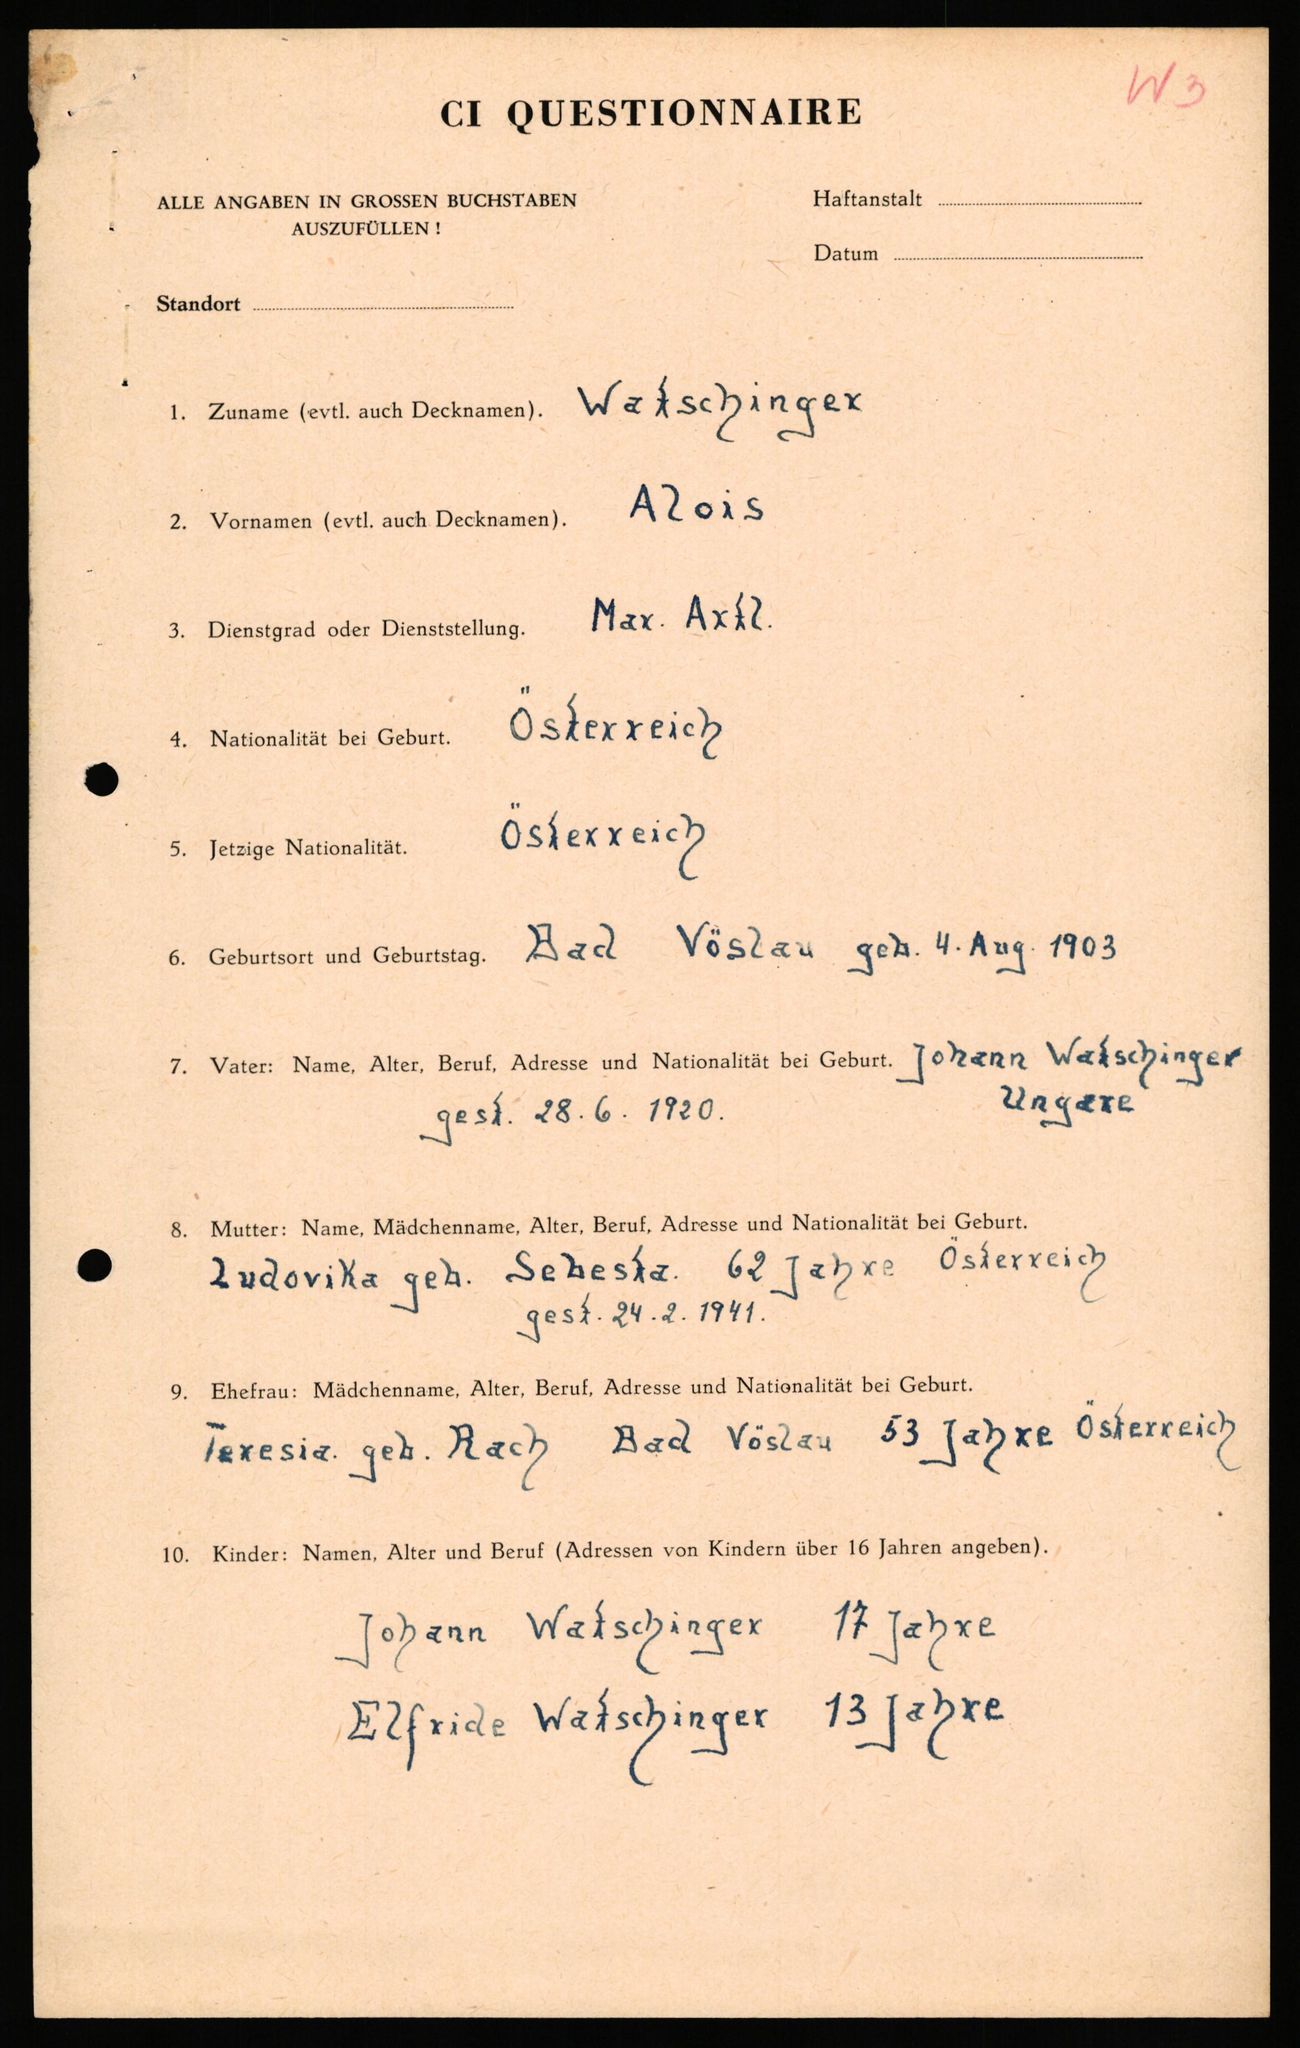 W3
CI QUESTIONNAIRE
ALLE ANGABEN IN GROSSEN BUCHSTABEN
AUSZUFÜLLEN !
Haftanstalt
Datum
Standort
1. Zuname (evtl. auch Decknamen). Watschinger
2. Vornamen (evtl. auch Decknamen). Alois
3. Dienstgrad oder Dienststellung. Mar. Artl.
4. Nationalität bei Geburt. Österreich
5. Jetzige Nationalität. Österreich
6. Geburtsort und Geburtstag. Bad Vöslau geb. 4. Aug. 1903
7. Vater: Name, Alter, Beruf, Adresse und Nationalität bei Geburt. Johann Watschinger
gest. 28. 6. 1920. Ungare
8. Mutter: Name, Mädchenname, Alter, Beruf, Adresse und Nationalität bei Geburt.
Ludovika geb. Sebesta. 62 Jahre Österreich
gest. 24. 2. 1941.
9. Ehefrau: Mädchenname, Alter, Beruf, Adresse und Nationalität bei Geburt.
Teresia. geb. Rach Bad Vöslau 53 Jahre Österreich
10. Kinder: Namen, Alter und Beruf (Adressen von Kindern über 16 Jahren angeben).
Johann Watschinger 17 Jahre
Elfride Watschinger 13 Jahre